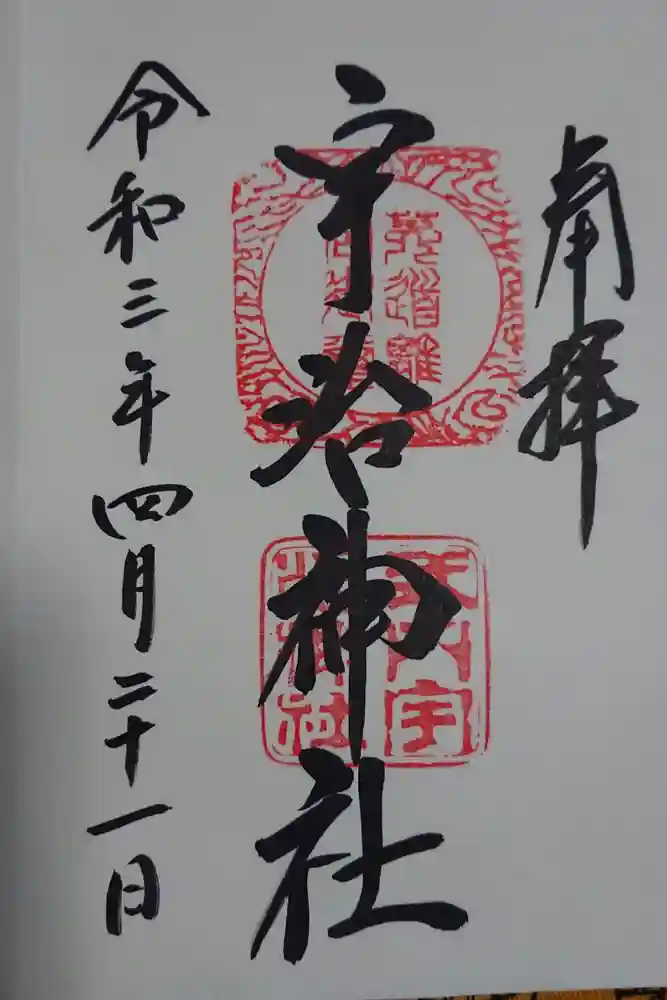 奉拝
宇治神社
令和三年四月二十一日